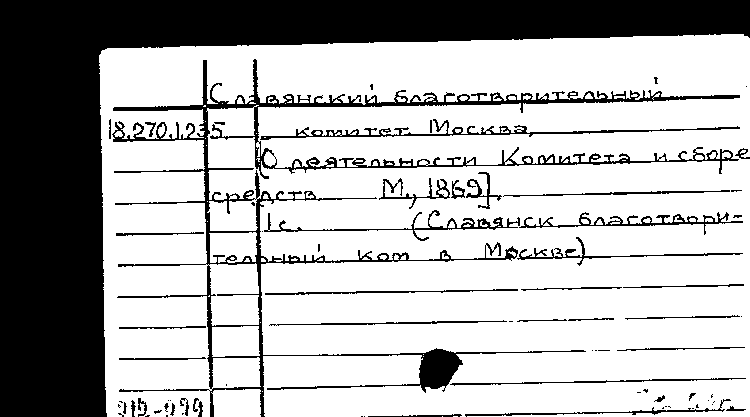 Славянский благотворительный
18.270.1.235. комитет. Москва.
[О деятельности Комитета и сборе
средств. М., 1869].
1с. (Славянск. благотвори-
тельный ком. в Москве)